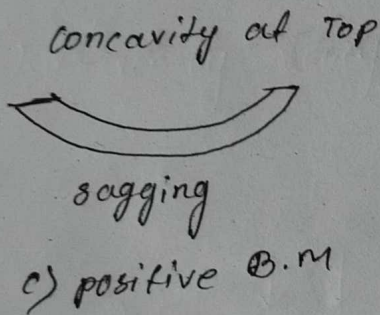 Concavity at Top
sagging
c) positive B.M